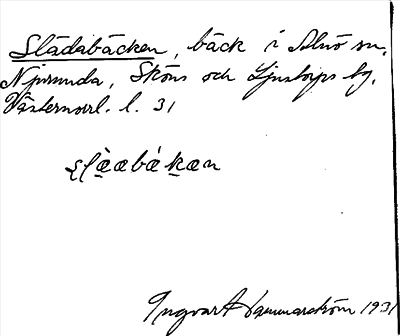 Slädabäcken, bäck i Alnö sn,
Njurunda, Sköns och Ljustorps tg,
Västernorrl. l. 31
Ingvart Hammarström 1931